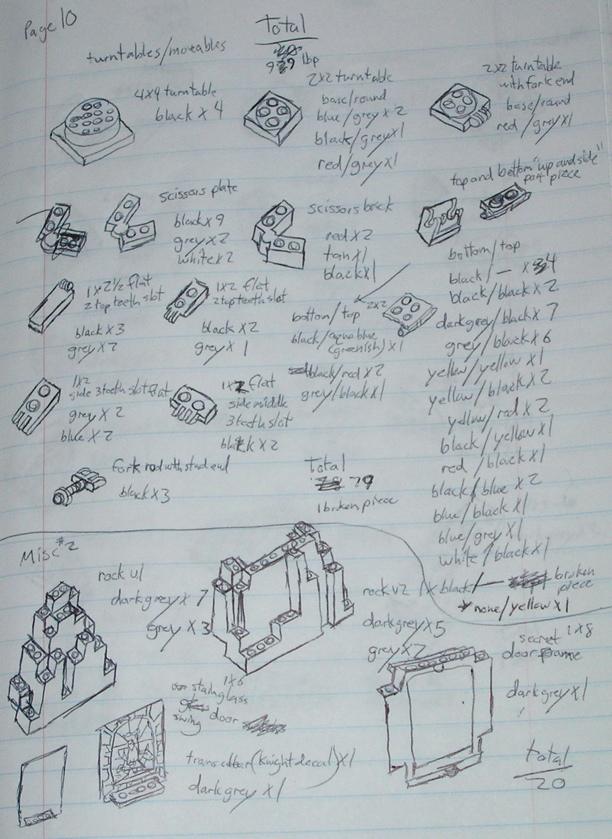 Page 10
Total
989 lbp
turntables/moveables
4x4 turntable
black x 4
2x2 turntable
base/round
blue/grey x 2
black/grey x1
red/grey x1
2x2 turntable
with fork end
base/round
red/grey x1
scissors plate
black x 9
grey x 2
white x 2
scissors brick
red x 2
tan x 1
black x 1
top and bottom "up and side"
port piece
bottom/top
black/— x 4
black/black x 2
dark grey/black x 7
grey/black x 6
yellow/yellow x 1
yellow/black x 2
yellow/red x 2
black/yellow x1
red/black x1
black/blue x 2
blue/black x1
blue/grey x1
white/black x1
1x black/— broken
piece
none/yellow x1
1x2½ flat
2 top teeth slot
black x 3
grey x 2
1x2 flat
2 top teeth slot
black x 2
grey x 1
2x2
bottom/top
black/aqua blue
(greenish) x 1
black/red x 2
grey/black x1
1x2
side 3 teeth slot flat
grey x 2
blue x 2
1x2 flat
side middle
3 teeth slot
black x 2
fork rod with stud end
black x 3
Total
79
1 broken piece
Misc #2
rock v1
dark grey x 7
grey x 3
rock v2
dark grey x 5
grey x 2
secret 1x8
door frame
dark grey x1
1x6
stainglass
door
swing
trans clear (knight decal) x1
dark grey x1
total
20